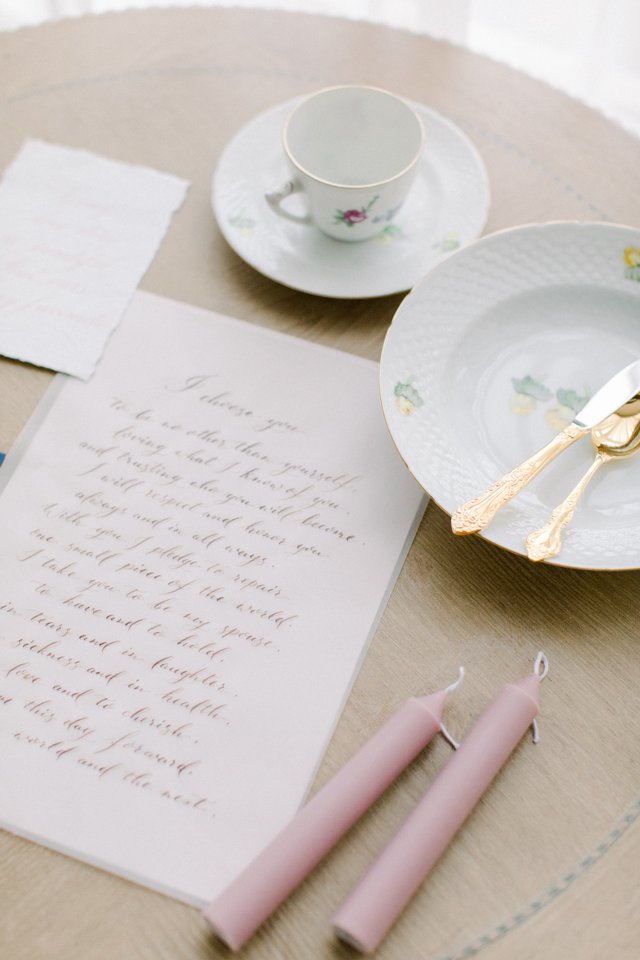 I choose you
to be no other than yourself,
loving what I know of you,
and trusting who you will become.
I will respect and honor you
always and in all ways.
With you I pledge to repair
one small piece of the world.
I take you to be my spouse.
to have and to hold,
in tears and in laughter,
sickness and in health,
love and to cherish,
this day forward,
world and the next.